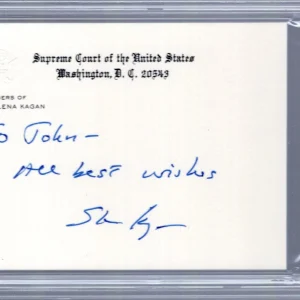 Supreme Court of the United States
Washington, D. C. 20543
BERS OF
LENA KAGAN
o John-
All best wishes